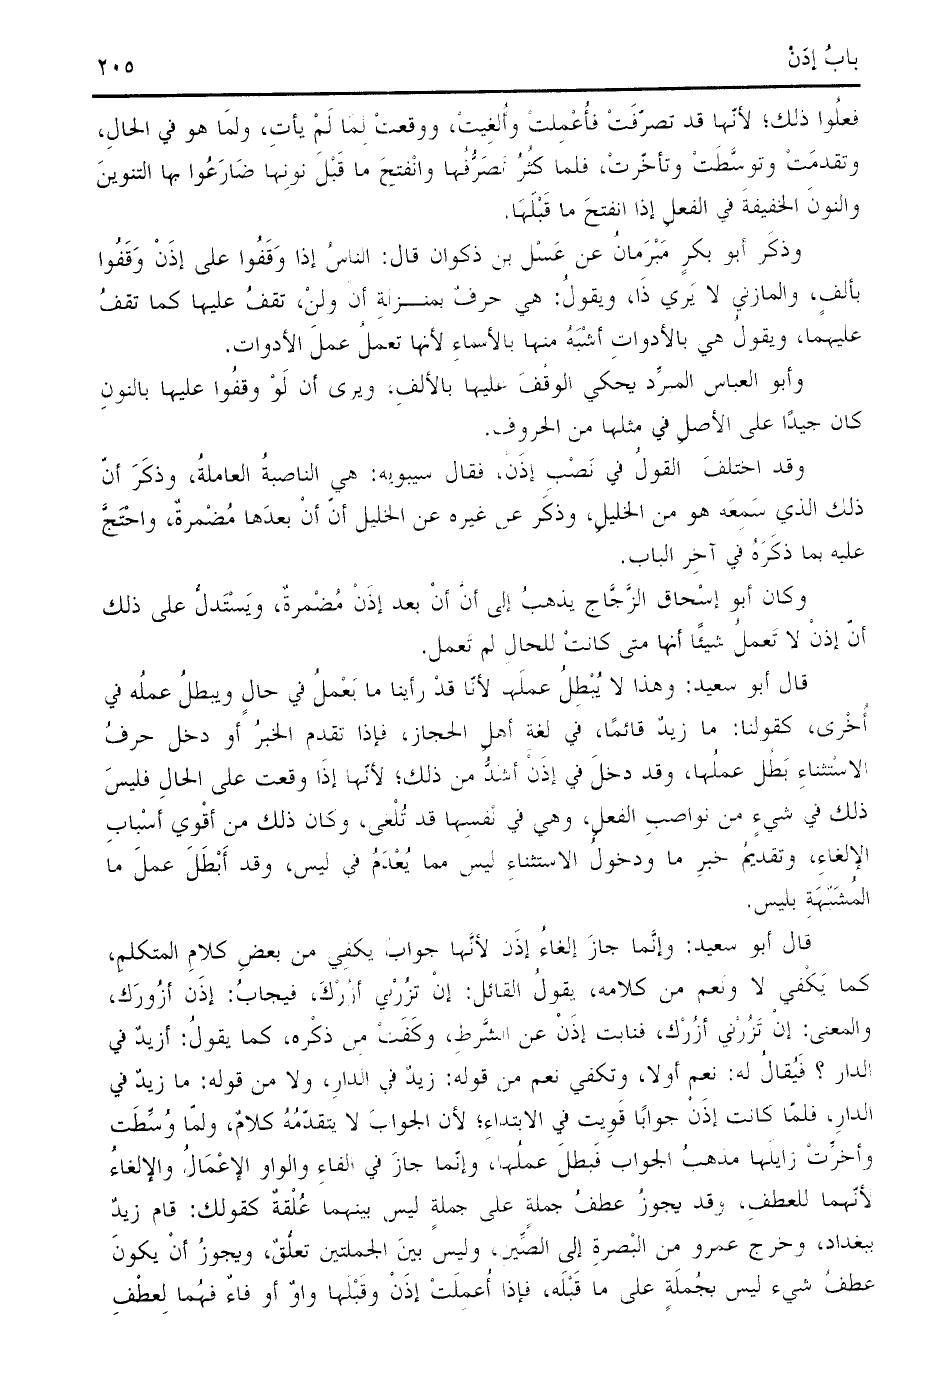 بابُ إذَنْ
٢٠٥
فعلُوا ذلك؛ لأنّها قد تصرّفَتْ فأُعْمِلتْ وأُلغِيتْ، ووقعتْ لِمَا لَمْ يأت، ولمَا هو في الحالِ،
وتقدمَتْ وتوسَّطَتْ وتأخّرت، فلما كثُرُ تصَرُّفُها وانْفتحَ ما قَبْلَ نونِها ضَارَعُوا بها التنوينَ
والنونَ الخفيفةَ في الفعلِ إذا انفتحَ ما قَبْلَهَا.
وذكَر أبو بكرٍ مَبْرَمانُ عن عَسْل بن ذكوان قال: الناسُ إذا وَقَفُوا على إذَنْ وَقَفُوا
بألفٍ، والمازني لا يَري ذَا، ويقولُ: هي حرفٌ بمنـزلةِ أن ولنْ، تقفُ عليها كما تقفُ
عليهما، ويقولُ هي بالأدواتِ أشْبَهُ منها بالأسماءِ لأنها تعملُ عملَ الأدوات.
وأبو العباس المبرِّد يحكي الوقْفَ عليها بالألفِ، ويرى أن لَوْ وقفُوا عليها بالنونِ
كان جيدًا على الأصلِ في مثلها من الحروف.
وقد اختلفَ القولُ في نَصْبِ إذَن، فقال سيبويه: هي الناصبةُ العاملةُ، وذكَرَ أنّ
ذلك الذي سَمِعَه هو من الخليلِ، وذكَر عن غيره عن الخليل أنّ أنْ بعدَها مُضْمرةٌ، واحْتَجَّ
عليه بما ذكَرَهُ في آخرِ الباب.
وكان أبو إسْحاق الزَّجَّاج يذهبُ إلى أن أنْ بعد إذَنْ مُضْمرةٌ، ويَسْتَدلُّ على ذلك
أنّ إذنْ لا تَعملُ شيئًا أنها متى كانتْ للحال لم تَعمل.
قال أبو سعيد: وهذا لا يُبْطِلُ عملَها لأنّا قدْ رأينا ما يَعْملُ في حالٍ ويبطلُ عملُه في
أُخْرى، كقولنا: ما زيدٌ قائمًا، في لغة أهلِ الحجاز، فإذا تقدم الخبرُ أو دخل حرفُ
الاسْتثناءِ بَطُل عملُها، وقد دخلَ في إذَنْ أشدُّ من ذلك؛ لأنّها إذَا وقعت على الحالِ فليسَ
ذلك في شيءٍ من نواصبِ الفعلِ، وهي في نَفْسِها قد تُلْغى، وكان ذلك من أقْوي أسْباب
الإلغاءِ، وتقديمُ خبرِ ما ودخولُ الاستثناءِ ليس مما يُعْدَمُ في ليس، وقد أَبْطَلَ عملَ ما
المُشَبَّهَةِ بليس.
قال أبو سعيد: وإنَّما جازَ إلغاءُ إذَن لأنَّها جواب يكفي من بعضِ كلامِ المتكلمِ،
كما يَكْفي لا ونعم من كلامه، يقولُ القائل: إنْ تزُرْني أزُرْكَ، فيجابُ: إذَن أزُورَك،
والمعنى: إنْ تَزُرْني أزُرْك، فنابت إذَنْ عن الشَّرطِ، وكَفَتْ من ذكْره، كما يقولُ: أزيدٌ في
الدار ؟ فَيُقالُ له: نعم أولا، وتكفي نعم من قوله: زيدٌ في الدارِ، ولا من قوله: ما زيدٌ في
الدارِ، فلمّا كانت إذَنْ جوابًا قَوِيت في الابتداءِ؛ لأن الجوابَ لا يتقدّمُهُ كلامٌ، ولمّا وُسِّطَت
وأُخرِّتْ زايلَها مذهبُ الجواب فبطلَ عملُها، وإنّما جازَ في الفاءِ والواوِ الإعْمَالُ والإلغاءُ
لأنّهما للعطف، وقد يجوزُ عطفُ جملةٍ على جملةٍ ليس بينهما عُلْقةٌ كقولك: قام زيدٌ
ببغداد، وخرج عمرو من البْصرةِ إلى الصِّينِ، وليس بينَ الجملتين تعلُّقٌ، ويجوزُ أنْ يكونَ
عطفُ شيء ليس بجُملَةٍ على ما قَبْلَه، فإذا أُعملَتْ إذَنْ وقَبْلَها واوٌ أو فاءٌ فهُما لِعطْفِ